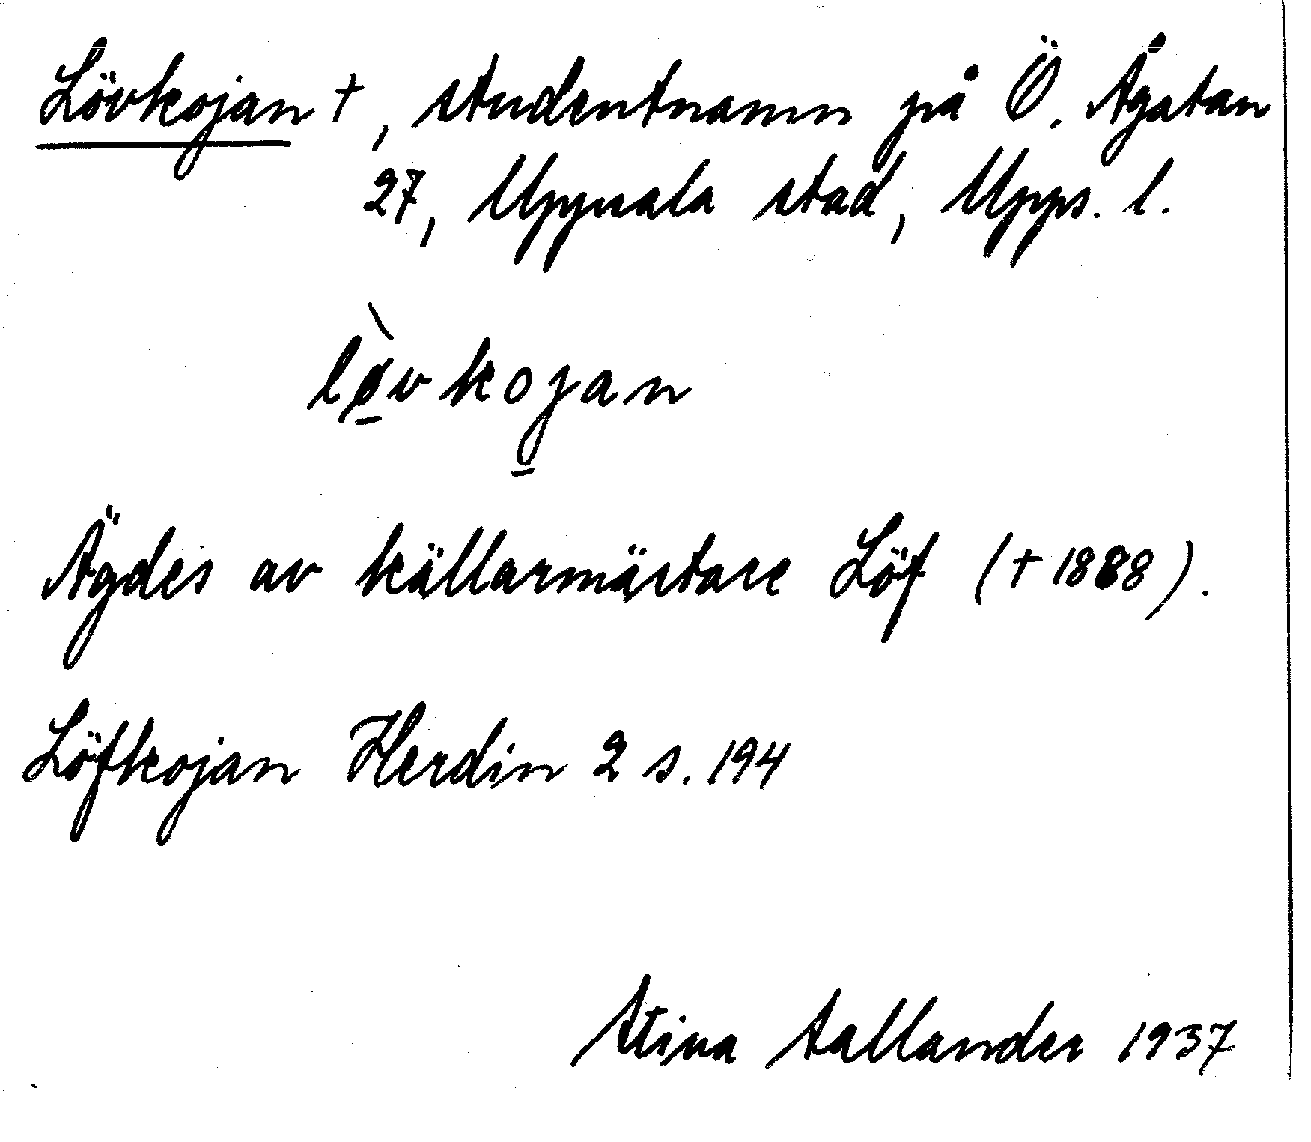 Lövkojan †, studentnamn på Ö. Ågatan
27, Uppsala stad, Upps. l.
lø̱̀vkoj̱an
Ägdes av källarmästare Löf († 1888).
Löfkojan Herdin 2 s. 194
Stina Sallander 1937